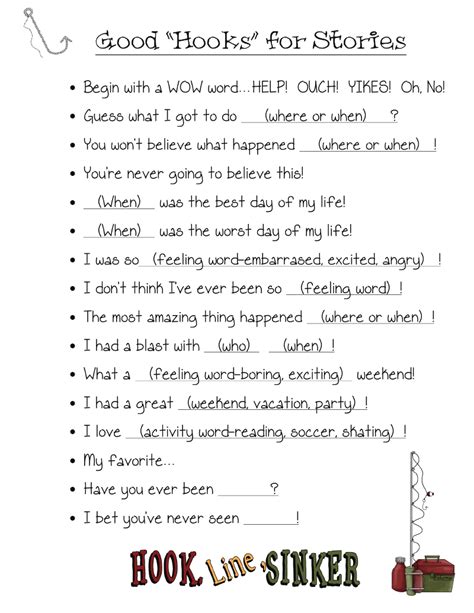 Good "Hooks" for Stories
• Begin with a WOW word...HELP! OUCH! YIKES! Oh, No!
• Guess what I got to do (where or when) ?
• You won't believe what happened (where or when) !
• You're never going to believe this!
• (When) was the best day of my life!
• (When) was the worst day of my life!
• I was so (feeling word-embarrased, excited, angry) !
• I don't think I've ever been so (feeling word) !
• The most amazing thing happened (where or when) !
• I had a blast with (who) (when) !
• What a (feeling word-boring, exciting) weekend!
• I had a great (weekend, vacation, party) !
• I love (activity word-reading, soccer, skating) !
• My favorite...
• Have you ever been ______?
• I bet you've never seen ______!
HOOK, Line, SINKER